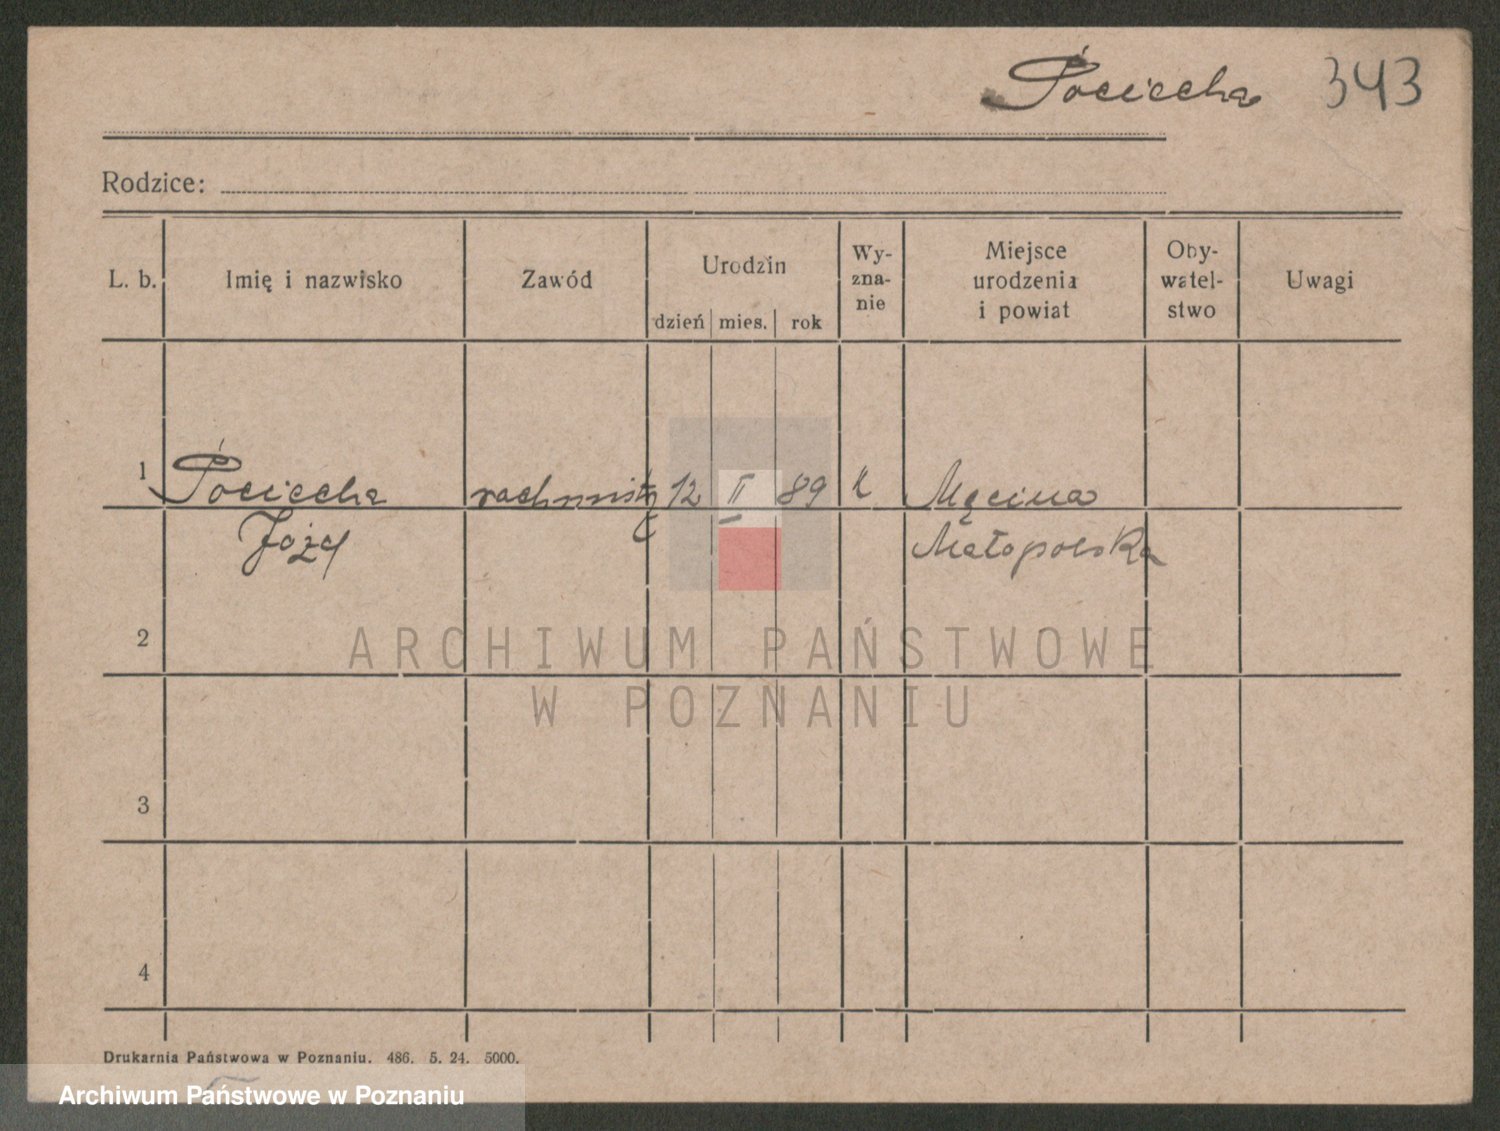 Pociecha 343
Rodzice:
L. b. Imię i nazwisko Zawód Urodzin Wy- zna- nie Miejsce urodzenia i powiat Oby- watel- stwo Uwagi
dzień mies. rok
1 Pociecha 12 II 89 k Męcina
Małopolska
2
ARCHIWUM PAŃSTWOWE
W POZNANIU
3
4
Drukarnia Państwowa w Poznaniu. 486. 5. 24. 5000.
Archiwum Państwowe w Poznaniu